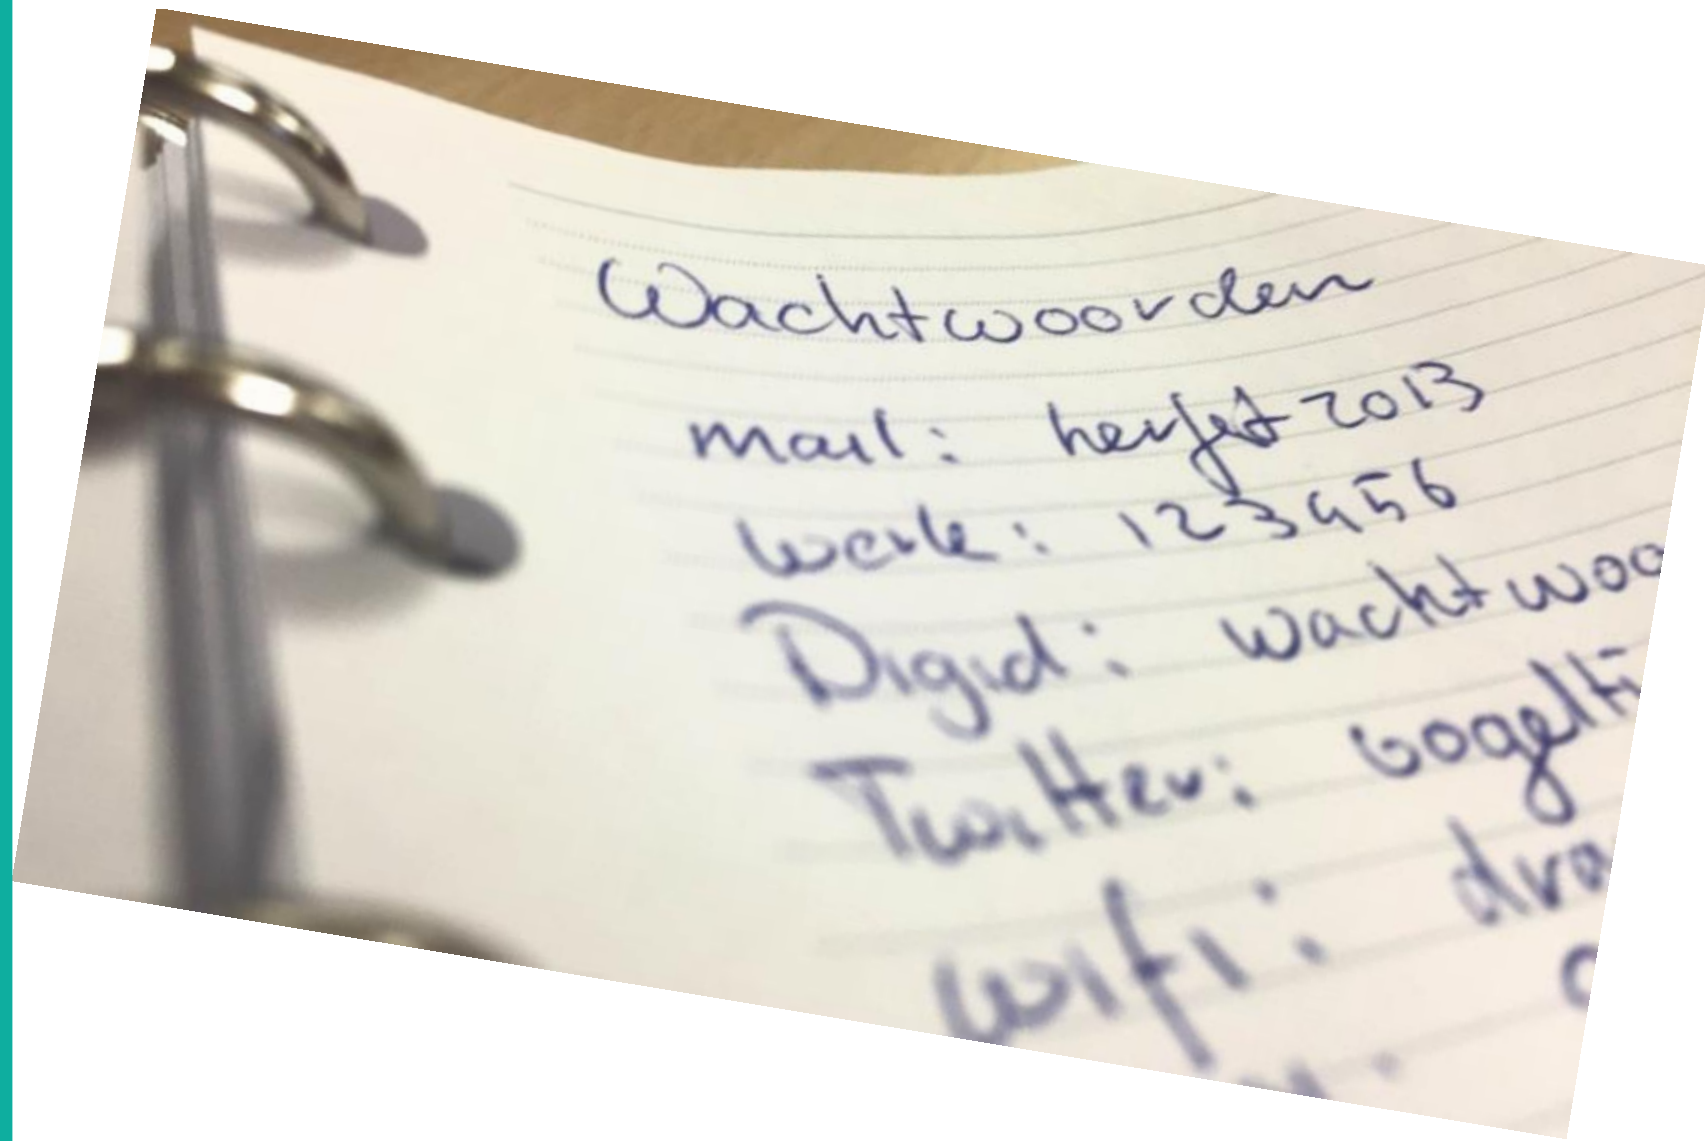 Wachtwoorden
mail: herfst 2013
werk: 123456
Digid: wachtwoo
Twitter: vogelti
wifi: dra